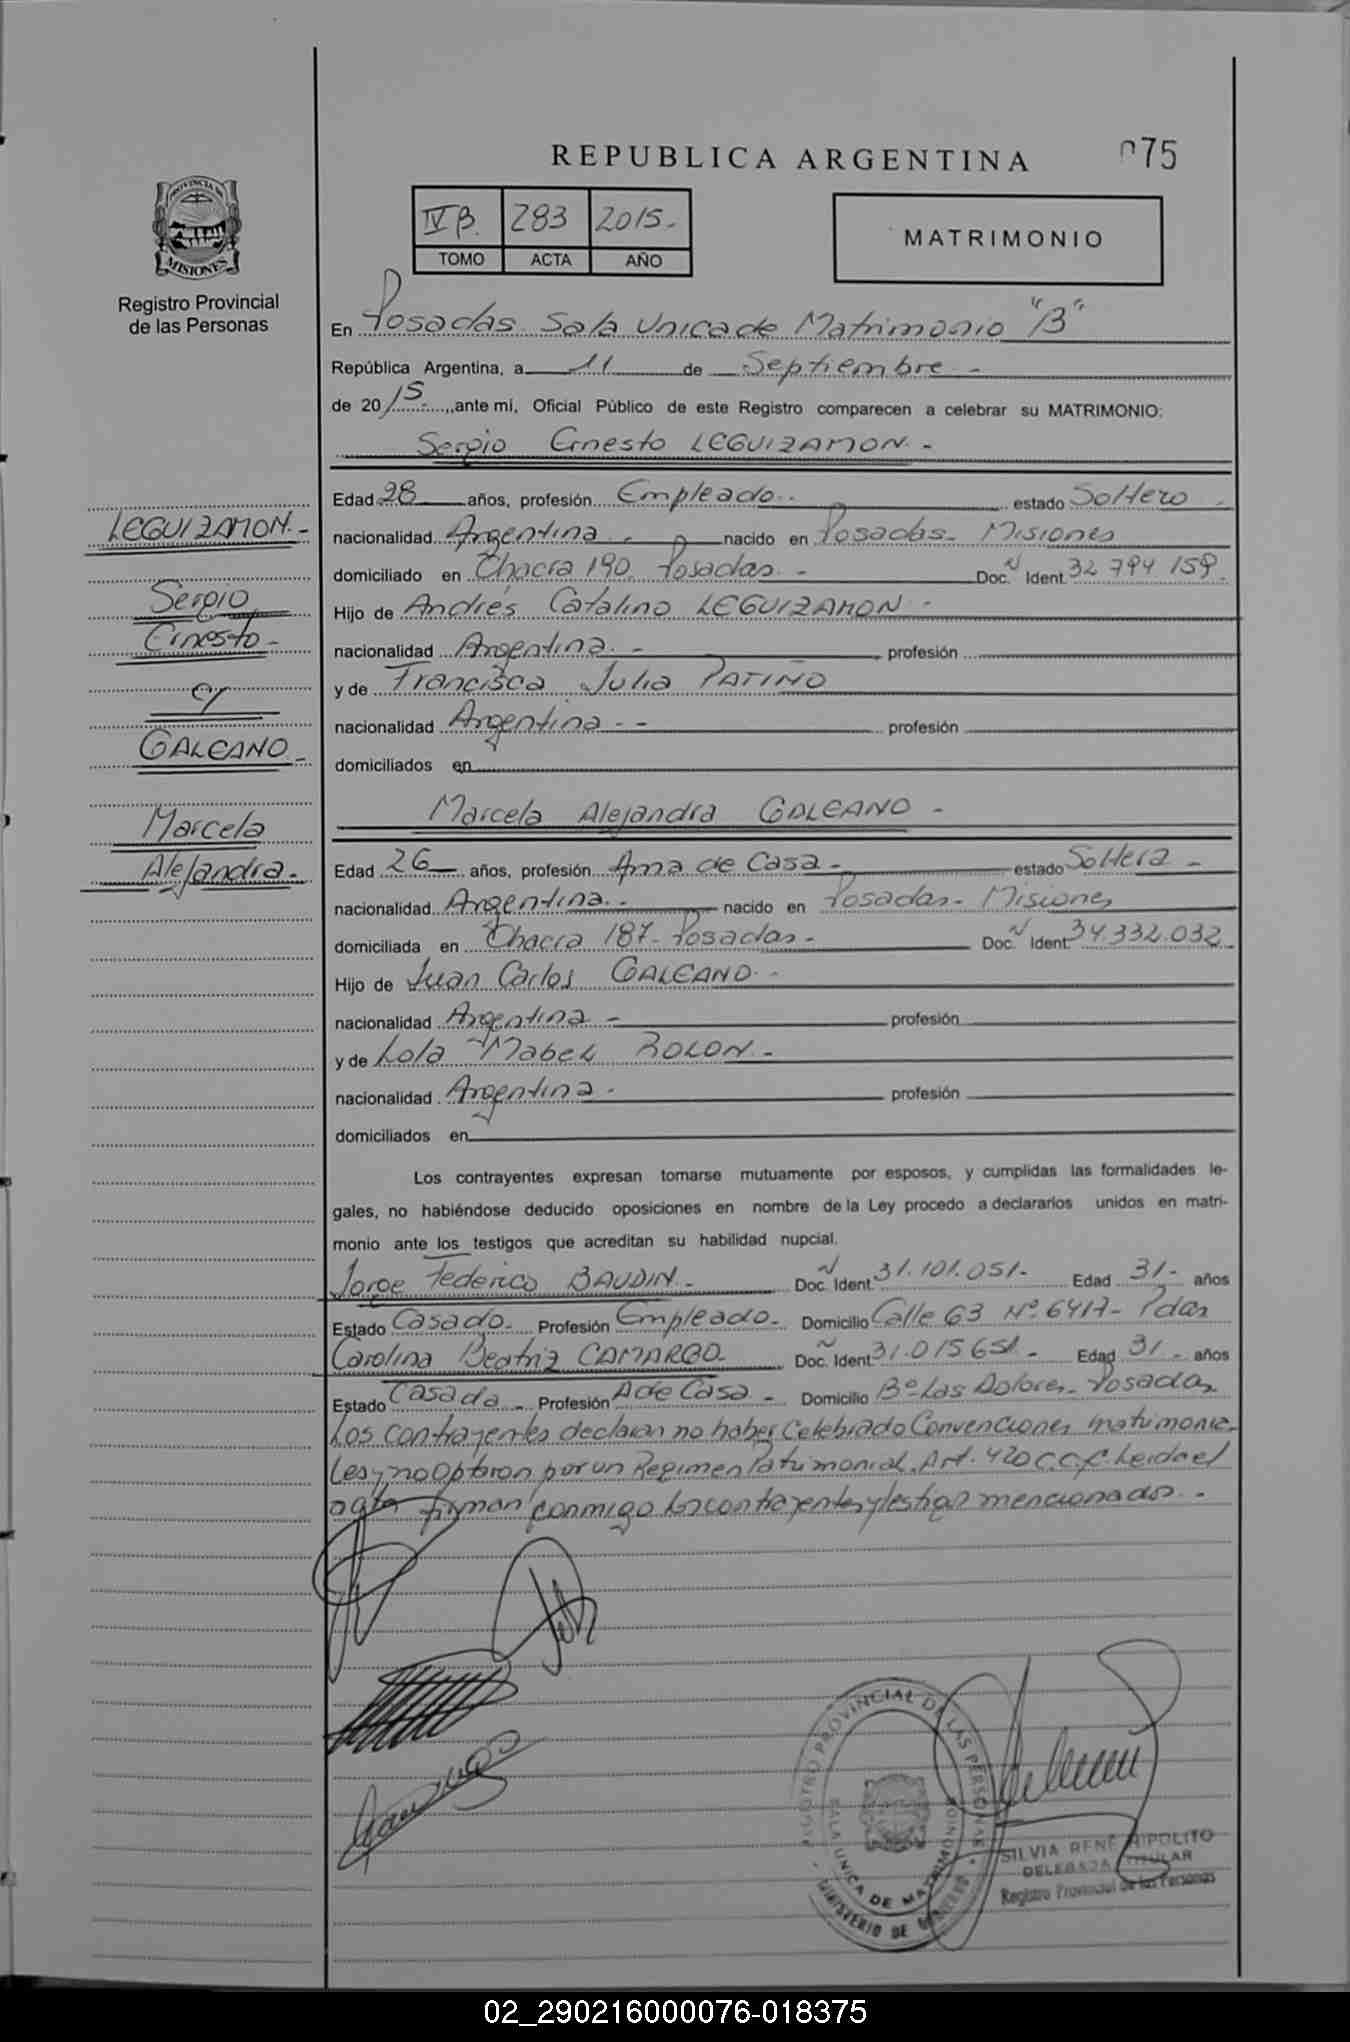 REPUBLICA ARGENTINA
075
IV B. 283 2015.-
TOMO ACTA AÑO
MATRIMONIO
PROVINCIA DE
MISIONES
Registro Provincial
de las Personas
En Posadas. Sala Unica de Matrimonio "B"
República Argentina, a 11 de Septiembre -
de 2015.-, ante mí, Oficial Público de este Registro comparecen a celebrar su MATRIMONIO:
Sergio Ernesto LEGUIZAMON -
Edad 28 años, profesión Empleado. estado Soltero -
nacionalidad Argentina - nacido en Posadas - Misiones
domiciliado en Chacra 190. Posadas. - Doc. N Ident. 32 794 159.
Hijo de Andrés Catalino LEGUIZAMON -
nacionalidad Argentina. - profesión
y de Francisca Julia PATIÑO
nacionalidad Argentina - - profesión
domiciliados en
Marcela Alejandra GALEANO -
Edad 26 años, profesión Ama de Casa - estado Soltera -
nacionalidad Argentina. - nacido en Posadas - Misiones
domiciliada en Chacra 187 - Posadas - Doc. N Ident 34.332.032
Hijo de Juan Carlos GALEANO. -
nacionalidad Argentina - profesión
y de Lola Mabel ROLON. -
nacionalidad Argentina - profesión
domiciliados en
Los contrayentes expresan tomarse mutuamente por esposos, y cumplidas las formalidades le-
gales, no habiéndose deducido oposiciones en nombre de la Ley procedo a declararlos unidos en matri-
monio ante los testigos que acreditan su habilidad nupcial.
Jorge Federico BAUDIN - Doc. N Ident. 31.101.051- Edad 31- años
Estado Casado. Profesión Empleado - Domicilio Calle 63 Nº 6417- Pdas
Carolina Beatriz CAMARGO - Doc. N Ident. 31.015651 - Edad 31 - años
Estado Casada - Profesión A de Casa - Domicilio Bº Las Dolores - Posadas
Los contrayentes declaran no haber Celebrado Convenciones matrimonia-
les y no optaron por un Regimen Patrimonial. Art. 420 C.C.C. Leida el
acta firman conmigo los contrayentes y testigos mencionados. -
LEGUIZAMON -
Sergio
Ernesto -
c/
GALEANO -
Marcela
Alejandra -
REGISTRO PROVINCIAL DE LAS PERSONAS
SALA UNICA DE MATRIMONIO
MINISTERIO DE GOBIERNO
SILVIA RENÉ HIPOLITO
DELEGADA TITULAR
Registro Provincial de las Personas
02_290216000076-018375